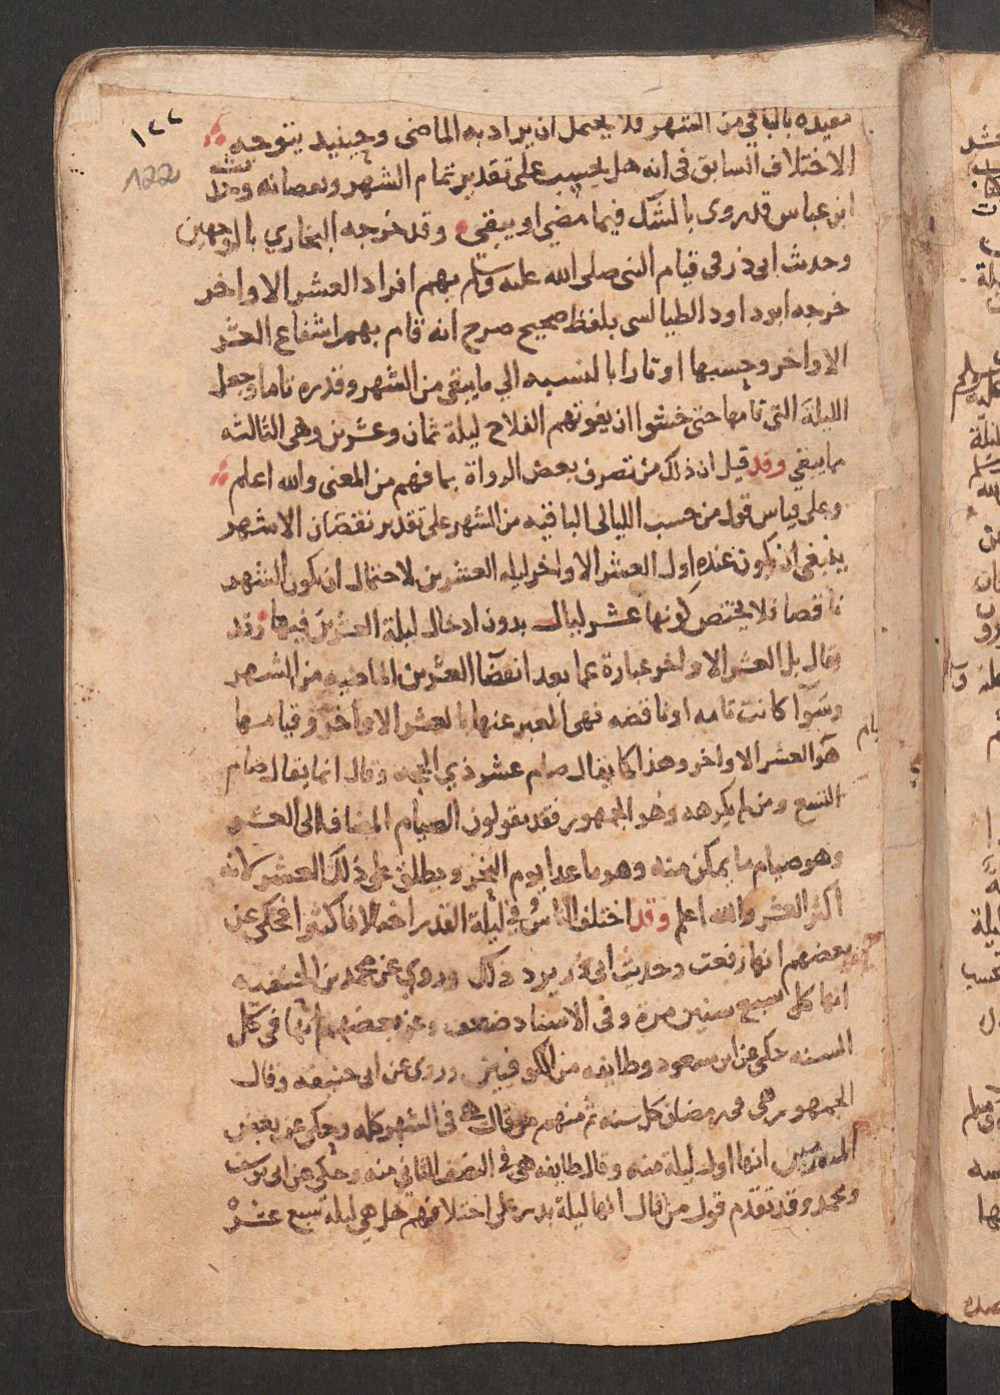 ١٢٢
122
مقيده بالباقي من الشهر فلا يحتمل ان يراد به الماضى وحينيد يتوجه
الاختلاف السابق فى انه هل يحسب على تقدير تمام الشهر ونقصانه وحديث
ابن عباس قد روى بالشك فيما مضى او يبقى وقد خرجه البخاري بالوجهين
وحديث ابى ذر فى قيام النبى صلى الله عليه وسلم بهم افراد العشر الاواخر
خرجه ابو داود الطيالسى بلفظ صحيح صرح انه قام بهم اشفاع العشر
الاواخر وحسبها اوتارا بالنسبه الي ما يبقى من الشهر وقدره تاما وجعل
الليلة التى قامها حتى خشوا ان يفوتهم الفلاح ليلة ثمان وعشرين وهى الثالثه
مما يبقي وقد قيل ان ذلك من تصرف بعض الرواة بما فهم من المعنى والله اعلم
وعلى قياس قول من حسب الليالى الباقيه من الشهر على تقدير نقصان الاشهر
ينبغى ان يكون عنده اول العشر الاواخر ليله العشرين لاحتمال ان يكون الشهر
ناقصا فلا يختص كونها عشر ليال بدون ادخال ليلة العشرين فيها وقد
يقال بل العشر الاواخر عبارة عما بعد انقضا العشرين الماضيه من الشهر
وسوآ كانت تامه او ناقصه فهى المعبر عنها بالعشر الاواخر وقيامها
يام
هو العشر الاواخر وهذا كما يقال صام عشر ذي الحجه وقال انما يقال صام
التسع ومن لم يكرهه وهو الجمهور فقد يقولون الصيام المضاف الى العشر
وهو صيام ما يمكن منه وهو ما عدا يوم النحر ويطلق على ذلك العشر لانه
اكثر العشر والله اعلم وقد اختلف الناس في ليلة القدر اختلافا كثيرا فحكى عن
بعضهم انها رفعت وحديث ابى ذر يرد ذلك وروي عن محمد بن الحنفيه
انها كل سبع سنين مرة وفى الاسناد ضعف وعن بعضهم انها فى كل
السنه حكى عن ابن مسعود وطايفه من الكوفيين وروى عن ابى حنيفه وقال
الجمهور هى فى رمضان كل سنه ثم منهم من قال هى فى الشهر كله وحكى عن بعض
انها اول ليلة منه وقال طايفه هى فى النصف الثانى منه وحكى عن ابى يوسف
ومحمد وقد تقدم قول من قال انها ليلة بدر على اختلافهم هل هي ليلة سبع عشرة